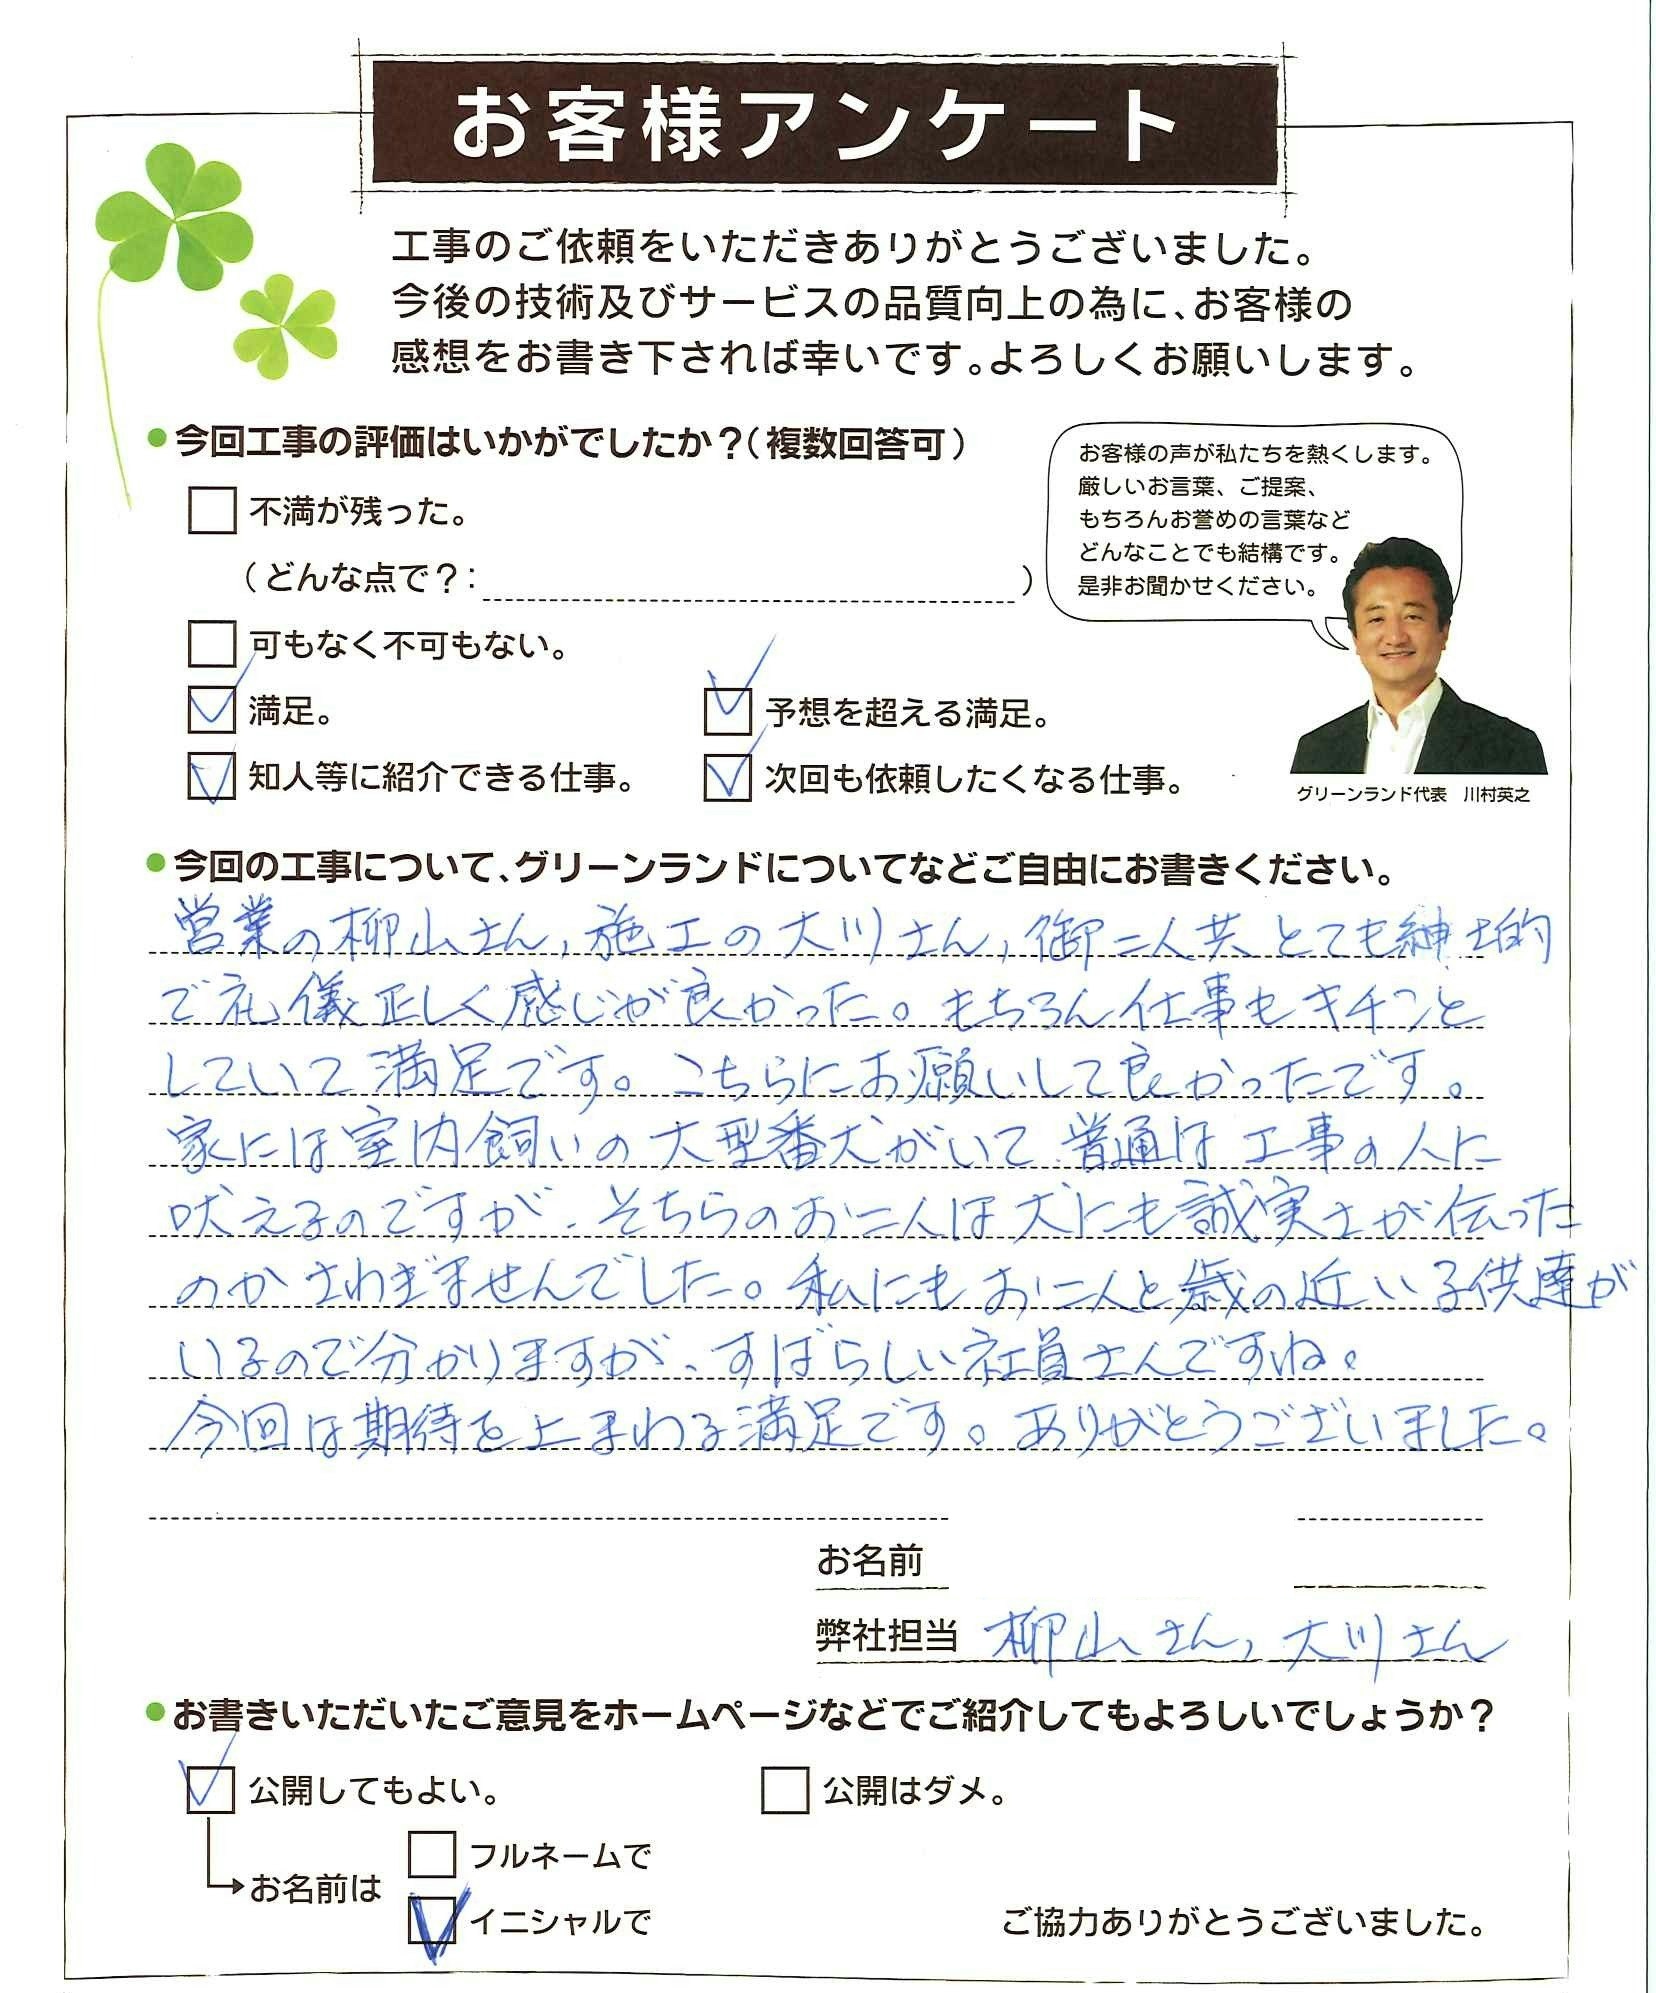 お客様アンケート
工事のご依頼をいただきありがとうございました。
今後の技術及びサービスの品質向上の為に、お客様の
感想をお書き下されば幸いです。よろしくお願いします。
●今回工事の評価はいかがでしたか？(複数回答可)
不満が残った。
(どんな点で？: )
可もなく不可もない。
満足。
予想を超える満足。
知人等に紹介できる仕事。
次回も依頼したくなる仕事。
お客様の声が私たちを熱くします。
厳しいお言葉、ご提案、
もちろんお誉めの言葉など
どんなことでも結構です。
是非お聞かせください。
グリーンランド代表 川村英之
●今回の工事について、グリーンランドについてなどご自由にお書きください。
営業の柳山さん, 施工の大川さん, 御二人共とても紳士的
で礼儀正しく感じが良かった。もちろん仕事もキチンと
していて満足です。こちらにお願いして良かったです。
家には室内飼いの大型番犬がいて、普通は工事の人に
吠えるのですが、そちらのお二人は犬にも誠実さが伝った
のかさわぎませんでした。私にもお二人と歳の近い子供達が
いるので分かりますが、すばらしい社員さんですね。
今回は期待を上まわる満足です。ありがとうございました。
お名前
弊社担当 柳山さん, 大川さん
●お書きいただいたご意見をホームページなどでご紹介してもよろしいでしょうか？
公開してもよい。
公開はダメ。
お名前は
フルネームで
イニシャルで
ご協力ありがとうございました。